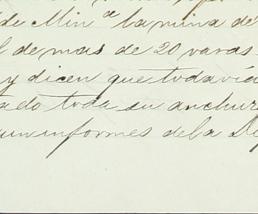 de Min^de la mina de
l de mas de 20 varas
y dicen que todavía
ado toda su anchura
un informes de la Di